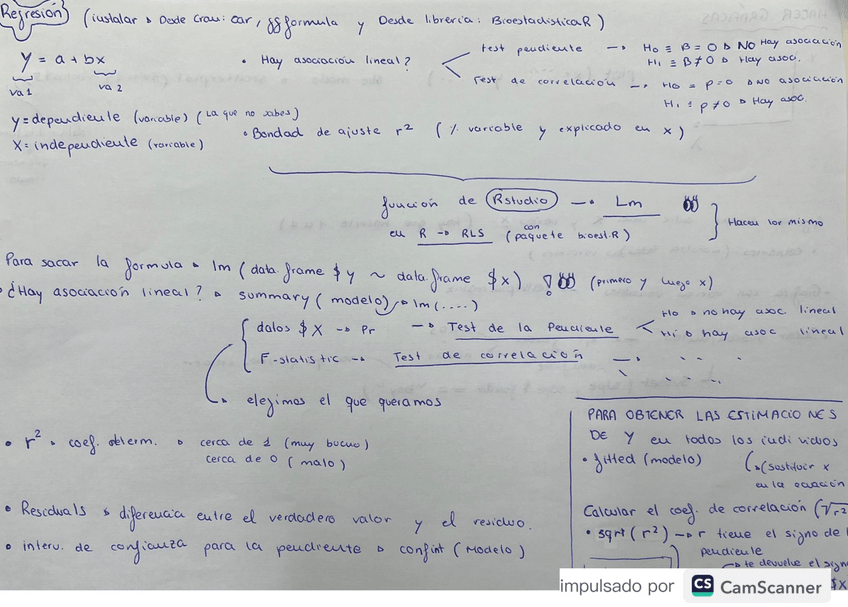 Regresión (instalar → Desde Cran: car, y Desde librería: Bioestadística.R)
y = a + bx
va 1
va 2
• Hay asociación lineal?
test pendiente → H0 ≡ B = 0 → NO Hay asociación
H1 ≡ B ≠ 0 → Hay asoc.
Test de correlación → H0 ≡ ρ = 0 → NO asociación
H1 ≡ ρ ≠ 0 → Hay asoc.
y = dependiente (variable) (La que no sabes)
X = independiente (variable)
• Bondad de ajuste r² (% variable y explicado en x)
función de Rstudio → Lm
en R → RLS (con paquete bioest.R)
Hacen lo mismo
Para sacar la formula → lm (data.frame $ y ~ data.frame $ x) ! (primero y luego x)
• ¿Hay asociación lineal? → summary (modelo) → lm (....)
datos $ X → Pr → Test de la Pendiente
H0 → no hay asoc lineal
H1 → hay asoc lineal
F-statistic → Test de correlación →
→ elegimos el que queramos
• r² → coef. determ. → cerca de 1 (muy bueno)
cerca de 0 (malo)
• Residuals → diferencia entre el verdadero valor y el residuo.
• interv. de confianza para la pendiente → confint (Modelo)
PARA OBTENER LAS ESTIMACIONES
DE Y en todos los individuos
• fitted (modelo) (→ (sustituir x
en la ecuación
Calcular el coef. de correlación (√r²
• sqrt (r²) → r tiene el signo de l
pendiente
→ te devuelve el sign
$X
impulsado por CS CamScanner